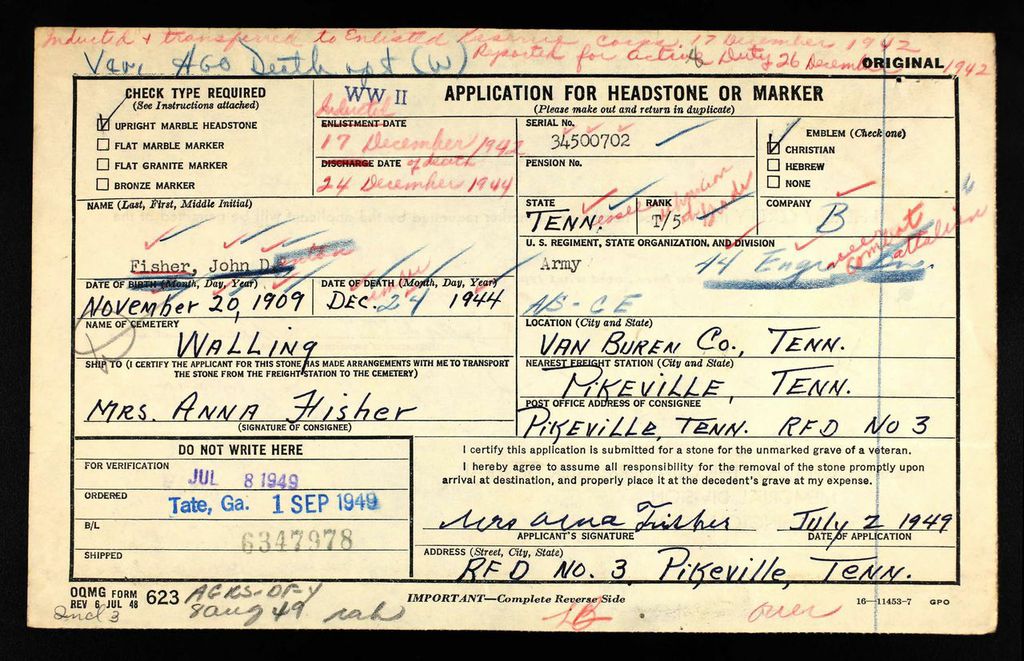 Inducted + transferred to Enlisted Reserve Corps 17 December 1942
Reported for active Duty 26 December 1942
Ver. AGO Death rpt (W)
ORIGINAL
CHECK TYPE REQUIRED
(See Instructions attached)
UPRIGHT MARBLE HEADSTONE
FLAT MARBLE MARKER
FLAT GRANITE MARKER
BRONZE MARKER
WW II
APPLICATION FOR HEADSTONE OR MARKER
(Please make out and return in duplicate)
Inducted
ENLISTMENT DATE
17 December 1942
DISCHARGE DATE of death
24 December 1944
SERIAL No.
34500702
PENSION No.
EMBLEM (Check one)
CHRISTIAN
HEBREW
NONE
NAME (Last, First, Middle Initial)
Fisher, John D
STATE
TENN.essee
RANK
T/5
COMPANY
B
U. S. REGIMENT, STATE ORGANIZATION, AND DIVISION
Army
44 Engr
Combat
Battalion
AUS - CE
DATE OF BIRTH (Month, Day, Year)
November 20, 1909
DATE OF DEATH (Month, Day, Year)
DEC. 24 1944
NAME OF CEMETERY
WALLING
LOCATION (City and State)
VAN BUREN CO., TENN.
SHIP TO (I CERTIFY THE APPLICANT FOR THIS STONE HAS MADE ARRANGEMENTS WITH ME TO TRANSPORT
THE STONE FROM THE FREIGHT STATION TO THE CEMETERY)
NEAREST FREIGHT STATION (City and State)
PIKEVILLE, TENN.
MRS. ANNA Fisher
(SIGNATURE OF CONSIGNEE)
POST OFFICE ADDRESS OF CONSIGNEE
PIKEVILLE, TENN. RFD No 3
DO NOT WRITE HERE
FOR VERIFICATION
JUL 8 1949
ORDERED
Tate, Ga. 1 SEP 1949
B/L
6347978
SHIPPED
I certify this application is submitted for a stone for the unmarked grave of a veteran.
I hereby agree to assume all responsibility for the removal of the stone promptly upon
arrival at destination, and properly place it at the decedent's grave at my expense.
Mrs Anna Fisher July 2 1949
APPLICANT'S SIGNATURE
DATE OF APPLICATION
ADDRESS (Street, City, State)
RFD NO. 3, PIKEVILLE, TENN.
OQMG FORM
REV 6 JUL 48 623
AGRS-DF-Y
8 aug 49
Incl 3
IMPORTANT—Complete Reverse Side
over
16—11453-7 GPO